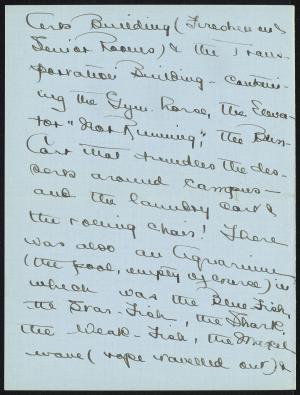 Arts Building (Freshmen and
Senior Rooms) & the Trans-
portation Building - contain-
ing the Gym horse, the Eleva-
tor "Not Running", the Bus-
Cart that trundles the des-
serts around campus -
and the laundry cart &
the rolling chair! There
was also an Aquarium
(the pool, empty of course) in
which was the Blue-Fish,
the Star-Fish, the Shark,
the Weak-Fish, the
wave (rope ravelled out) &